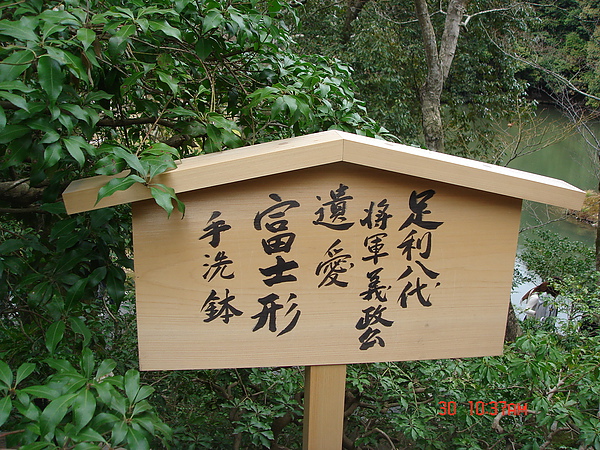 足利八代
将軍義政公
遺愛
富士形
手洗鉢
30 10:37AM